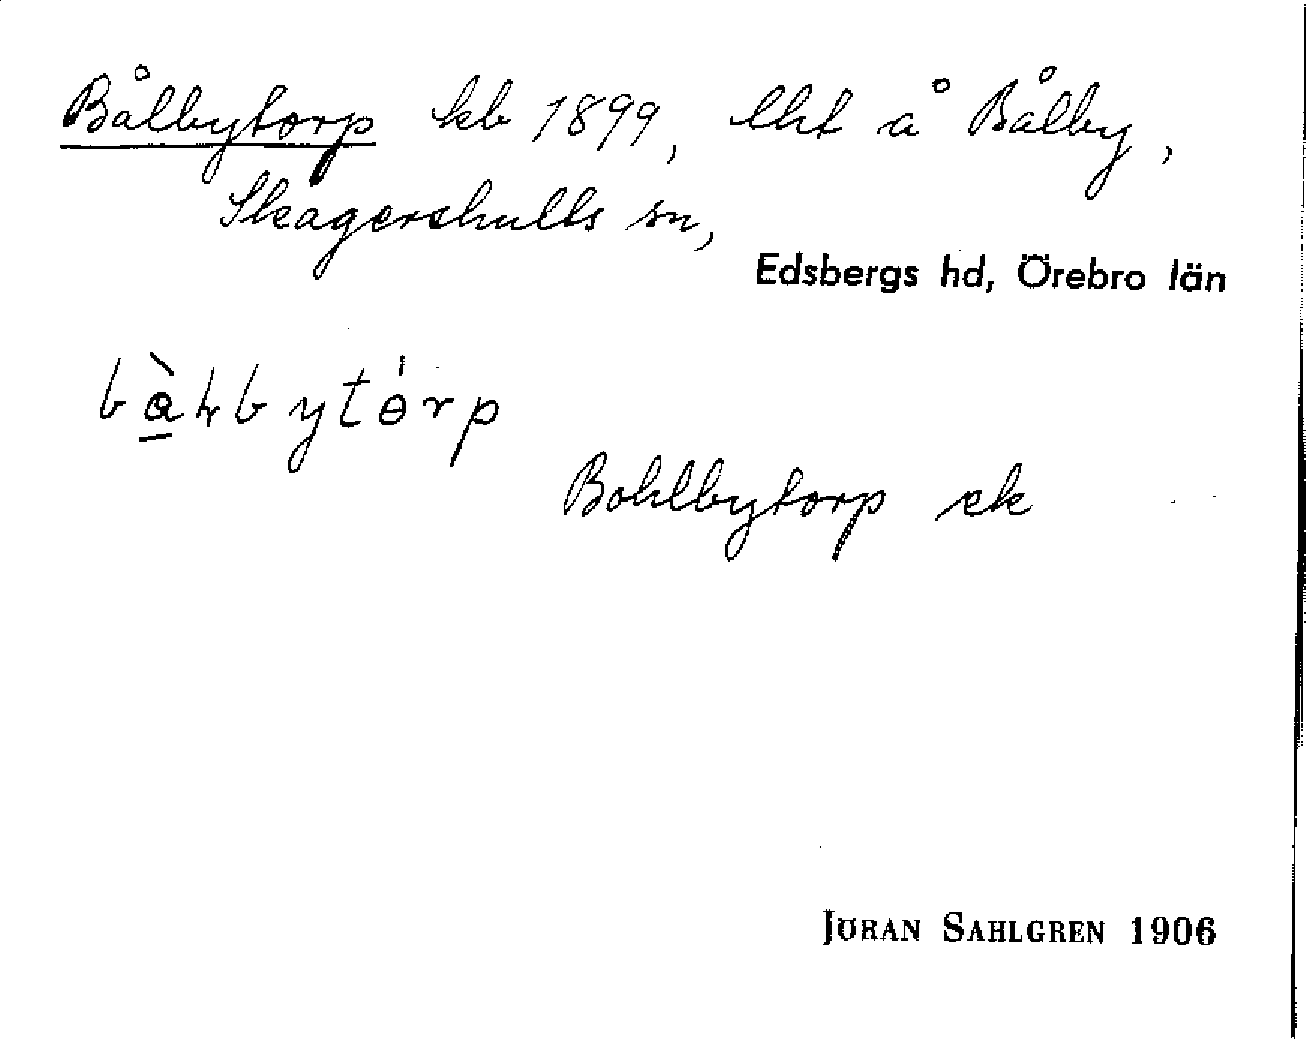 Bålbytorp kb 1899, lht å Bålby,
Skagershults sn,
Edsbergs hd, Örebro län
Bohlbytorp ek
JÖRAN SAHLGREN 1906